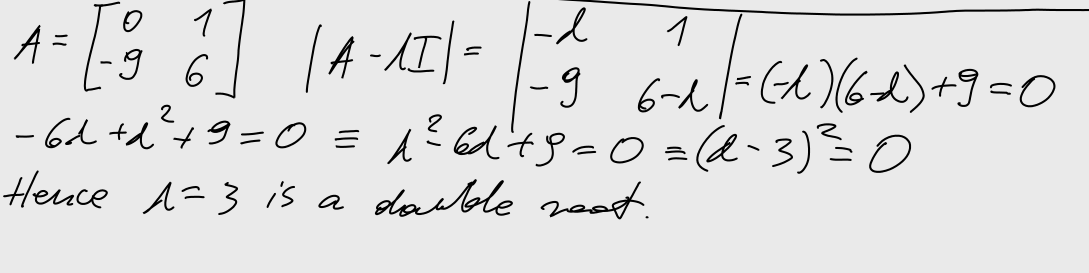 A = [0 1; -9 6] |A - λI| = |-λ 1; -9 6-λ| = (-λ)(6-λ) + 9 = 0
-6λ + λ² + 9 = 0 ≡ λ² - 6λ + 9 = 0 ≡ (λ - 3)² = 0
Hence λ = 3 is a double root.